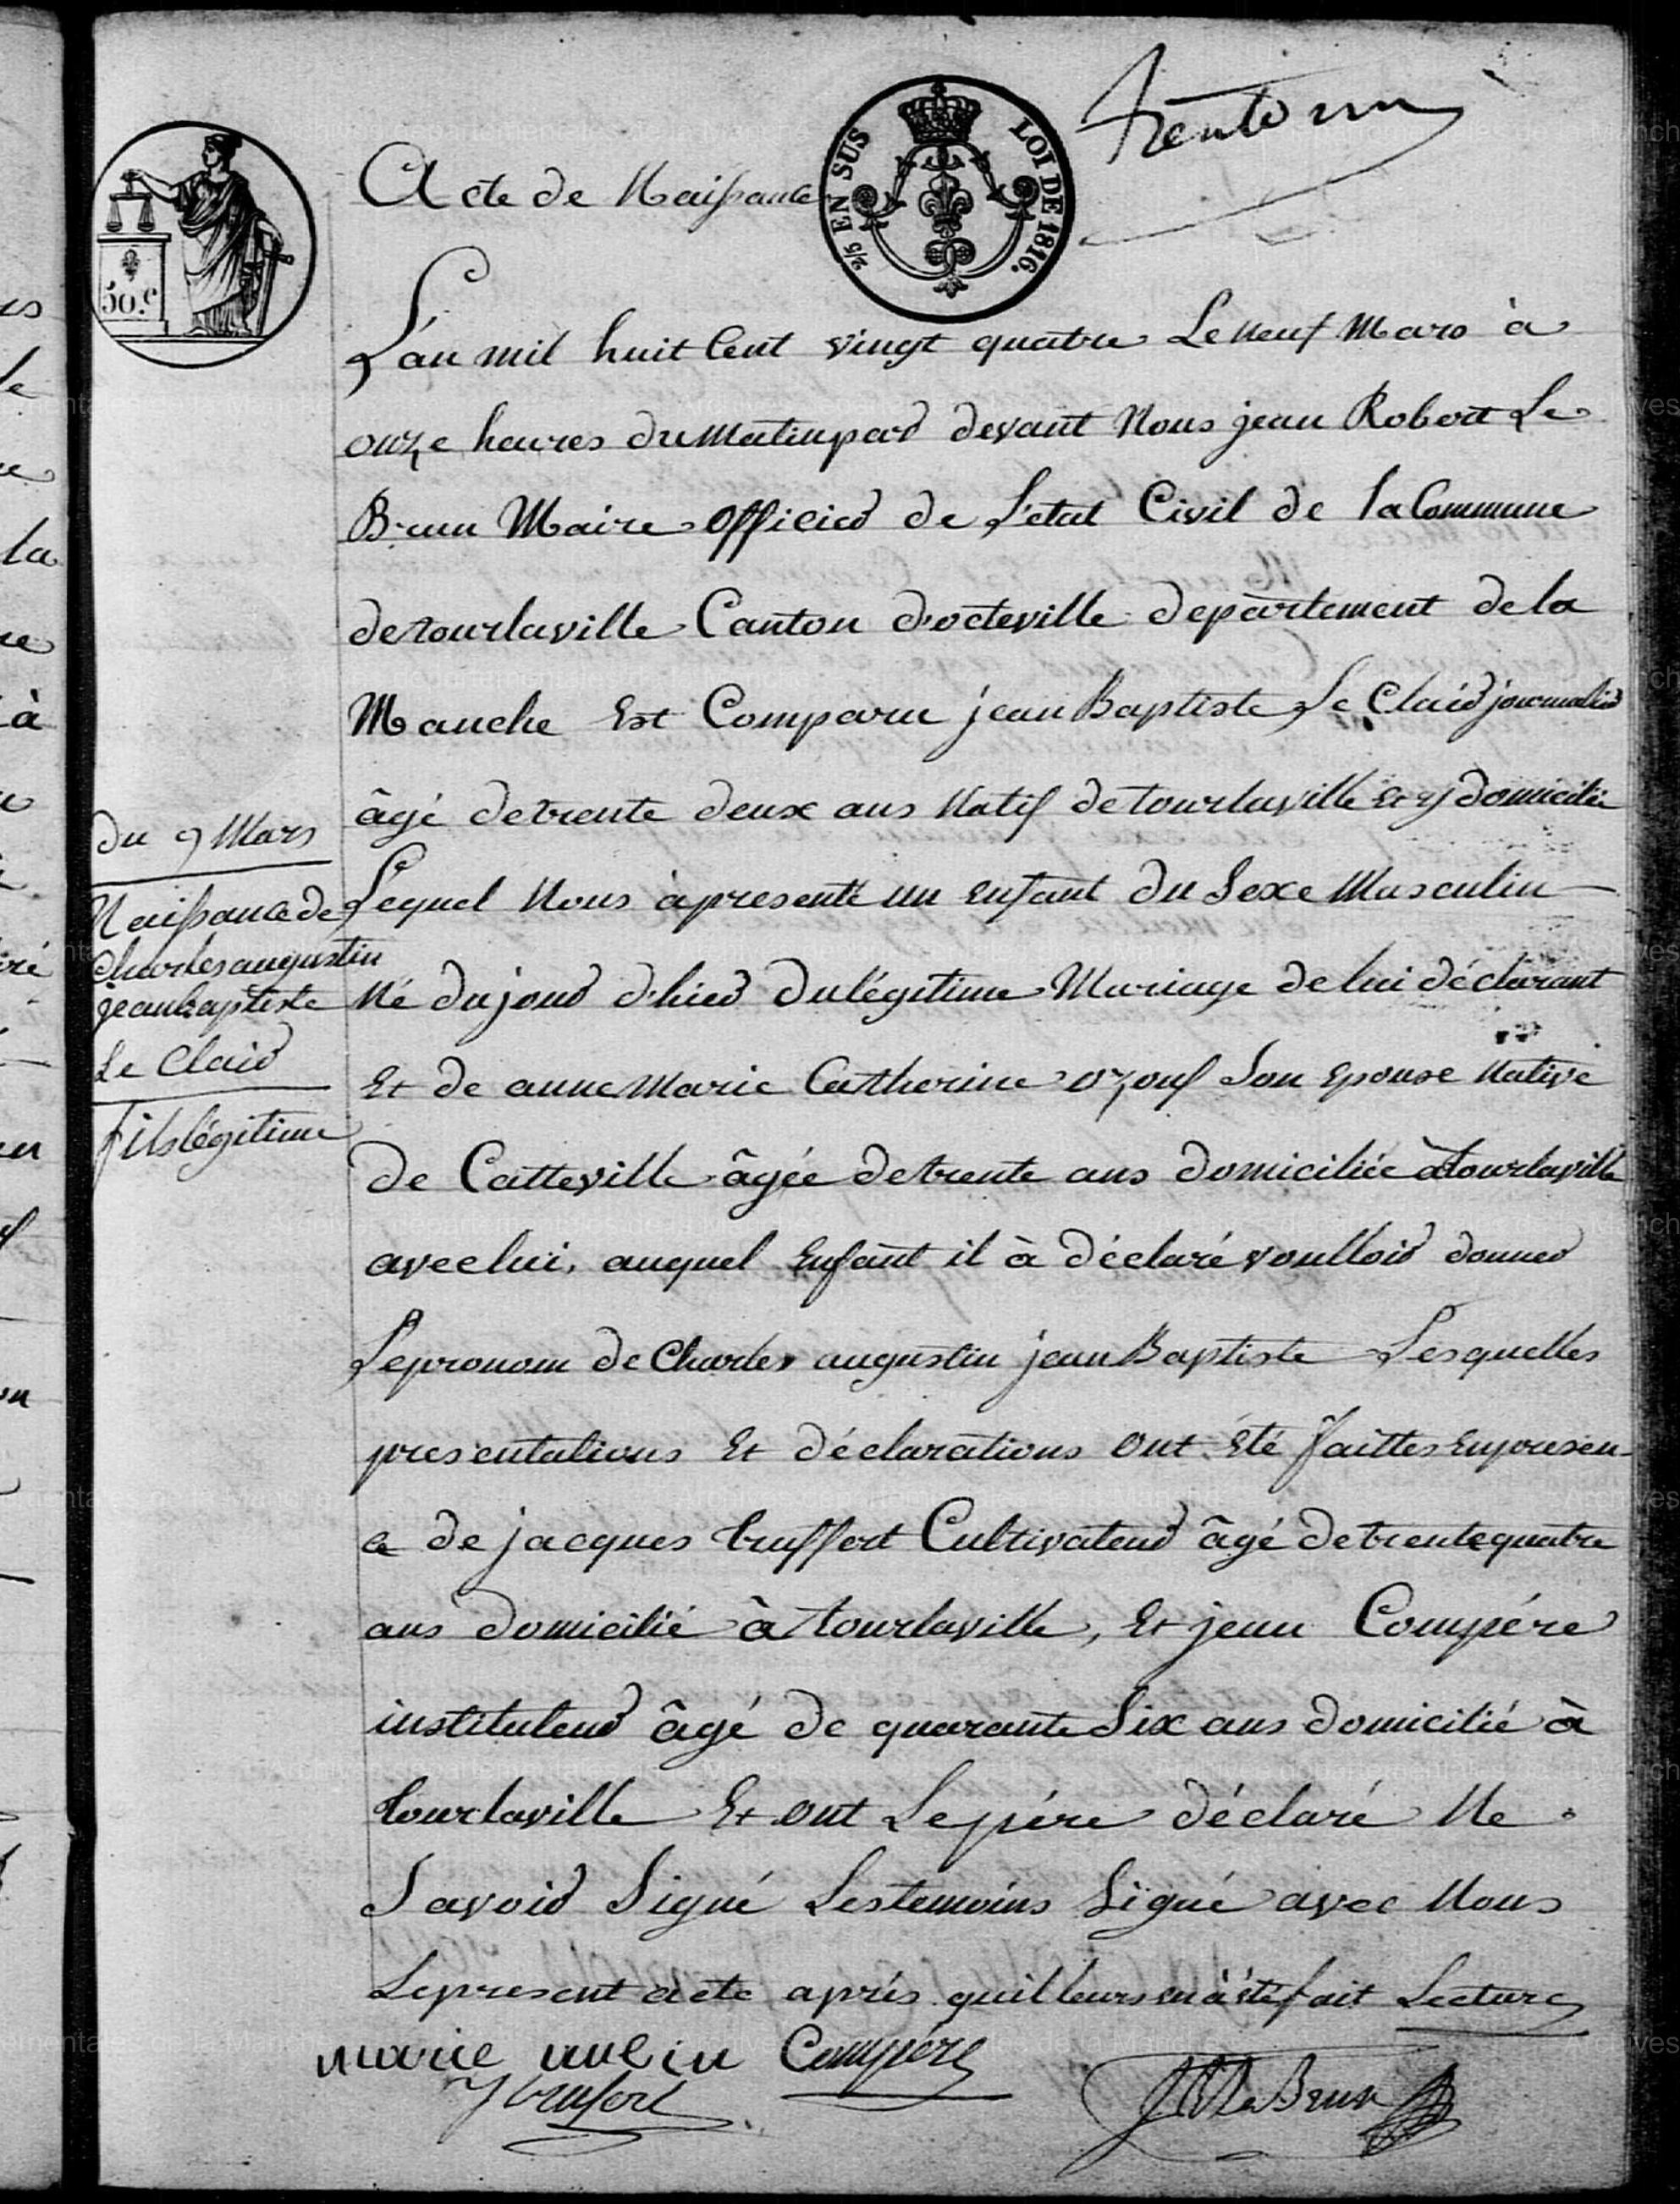 trente un
Acte de Naissance
2/5 EN SUS LOI DE 1816.
50.c
L'an mil huit Cent vingt quatre Le neuf Mars à
onze heures du Matin par devant Nous jean Robert Le
Brun Maire officier de L'etat Civil de la Commune
de tourlaville Canton d'octeville departement de la
Manche Est Comparu jean Baptiste Le Clair journalier
âgé de trente deux ans Natif de tourlaville Et y domicilié
Lequel Nous à presenté un enfant du Sexe Masculin
Né du jour d'hier du légitime Mariage de lui déclarant
Et de anne Marie Catherine ozouf Son Epouse Native
de Catteville âgée de trente ans domiciliée à tourlaville
avec lui, auquel Enfant il à déclaré voulloir donner
Le pronom de Charles augustin jean Baptiste Lesquelles
presentations Et déclarations ont été faittes En presen-
ce de jacques truffert Cultivateur âgé de trente quatre
ans domicilié à tourlaville, Et jean Compére
instituteur âgé de quarante Six ans domicilié à
tourlaville Et ont Le pére déclaré Ne
Savoir Signé Les temoins Signé avec Nous
Le present acte aprés quil leurs en à été fait Lecture
du 9 Mars
Naissance de
Charles augustin
jean baptiste
Le Clair
fils légitime
marie Compére
J trufert
JR Le Brun